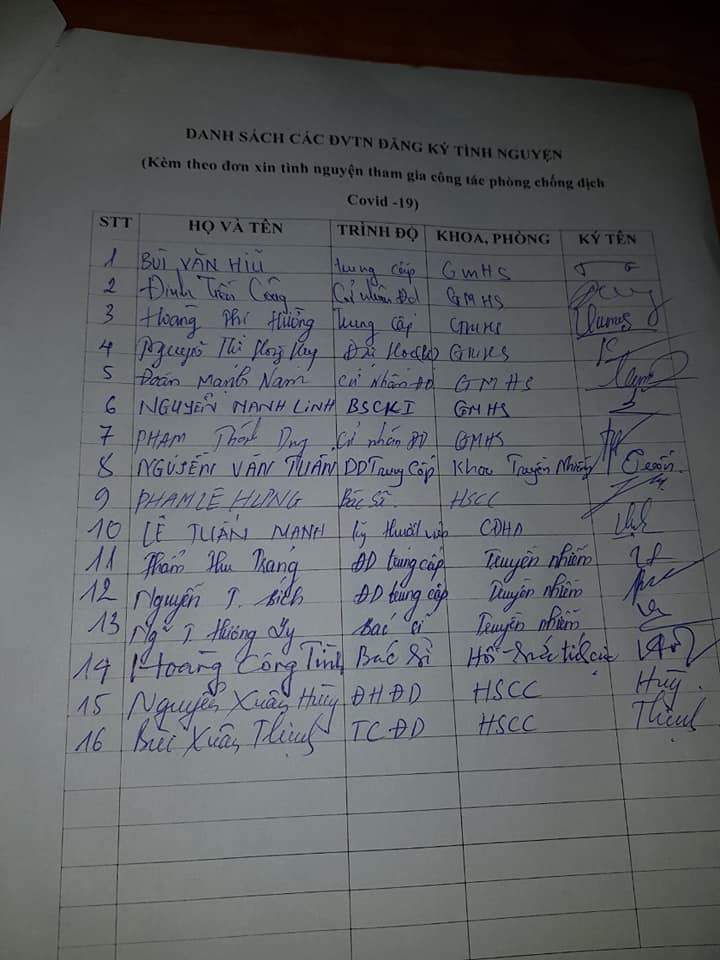 DANH SÁCH CÁC ĐVTN ĐĂNG KÝ TÌNH NGUYỆN
(Kèm theo đơn xin tình nguyện tham gia công tác phòng chống dịch
Covid -19)
STT HỌ VÀ TÊN TRÌNH ĐỘ KHOA, PHÒNG KÝ TÊN
1 BÙI VĂN HIU trung cấp GMHS
2 Đinh Trần Công Cử nhân ĐD GMHS
3 Hoàng Phi Hường Trung cấp GMHS
4 Nguyễn Thị Hồng GMHS
5 Đoàn Mạnh Nam Cử Nhân ĐD GMHS
6 NGUYỄN MẠNH LINH BSCKI GMHS
7 PHẠM Cử nhân ĐD GMHS
8 NGUYỄN VĂN TUẤN ĐD Trung Cấp Khoa Truyền Nhiễm
9 PHẠM LÊ HƯNG Bác Sĩ HSCC
10 LÊ TUẤN MẠNH Kỹ thuật viên CĐHA
11 Phạm Thu Trang ĐD trung cấp Truyền nhiễm
12 Nguyễn T. Bích ĐD trung cấp Truyền nhiễm
13 Ng T Hương Ly Bác sĩ Truyền nhiễm
14 Hoàng Công Tình Bác Sĩ Hồi sức
15 Nguyễn Xuân Hùy ĐHĐD HSCC Hùy
16 Bùi Xuân Thịnh TCĐD HSCC Thịnh